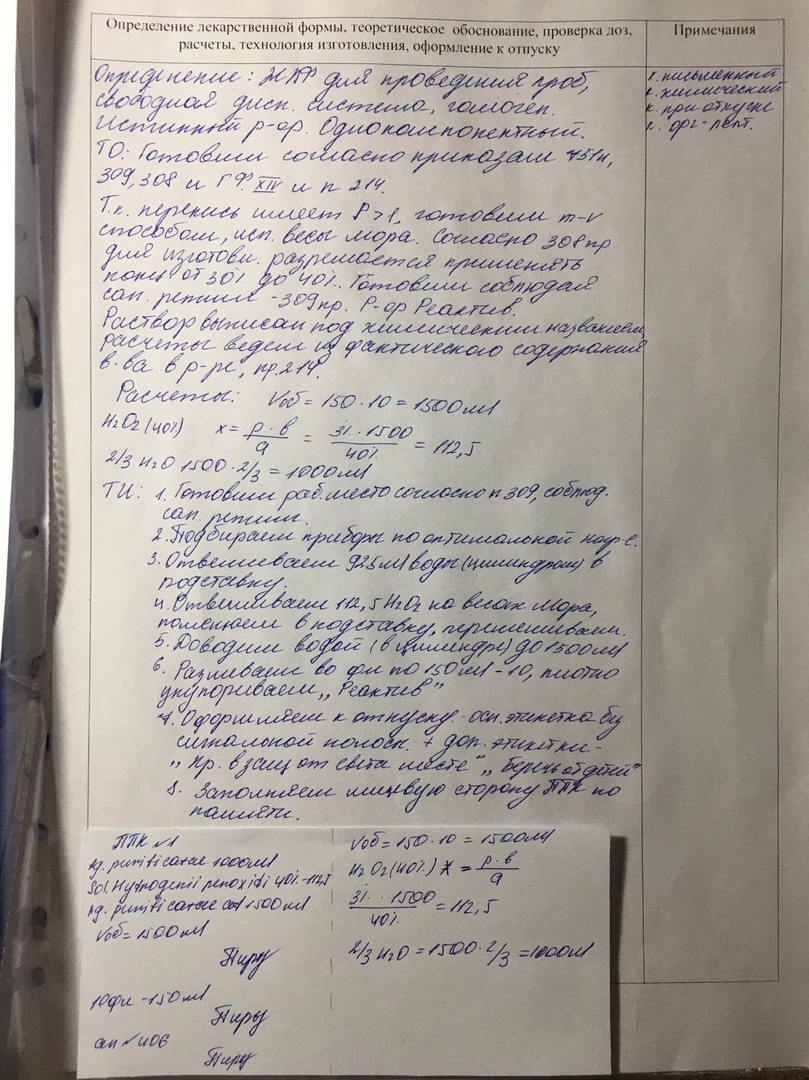 Определение лекарственной формы, теоретическое обоснование, проверка доз,
расчеты, технология изготовления, оформление к отпуску
Примечания
Определение: ЖЛФ для проведения проб,
свободная дисп. система, гомоген.
Истинный р-ор. Однокомпонентный.
ТО: Готовим согласно приказам 751н,
309, 308 и ГФ XIV и п 214.
Т.к. перекись имеет P>1, готовим m-v
способом, исп. весы мора. Согласно 308 пр
для изготовл. разрешается применять
конц от 30% до 40%. Готовим соблюдая
сан. режим - 309 пр. Р-ор Реактив.
Раствор выписан под химическим названием,
расчеты ведем из фактического содержания
в-ва в р-ре, пр.214.
Расчеты: Vоб = 150·10 = 1500мл
H2O2 (40%) x = p·b/a = 3%·1500/40% = 112,5
2/3 H2O 1500·2/3 = 1000мл
ТИ: 1. Готовим раб.место согласно п 309, соблюд.
сан. режим.
2. Подбираем приборы по оптимальной нагр-е.
3. Отвешиваем 925мл воды (цилиндром) в
подставку.
4. Отвешиваем 112,5 H2O2 на весах Мора,
помещаем в подставку, перемешиваем.
5. Доводим водой (в цилиндре) до 1500мл
6. Разливаем во фл по 150мл - 10, плотно
укупориваем, „Реактив"
7. Оформляем к отпуску - осн. этикетка без
сигнальной полосы. + доп. этикетки -
„Хр. в защ от света месте" „Беречь от детей"
8. Заполняем лицевую сторону ППК по
памяти.
к. письменный
к. химический
к. при отпуске
к. орг-лепт.
ППК №1
Aq. purificatae 1000мл
Sol. Hydrogenii peroxidi 40% - 112,5
Aq. purificatae ad 1500мл
Vоб = 1500мл
10фл - 150мл
ан №406
Vоб = 150·10 = 1500мл
H2O2 (40%) x = p·b/a
3%·1500/40% = 112,5
2/3 H2O = 1500·2/3 = 1000мл